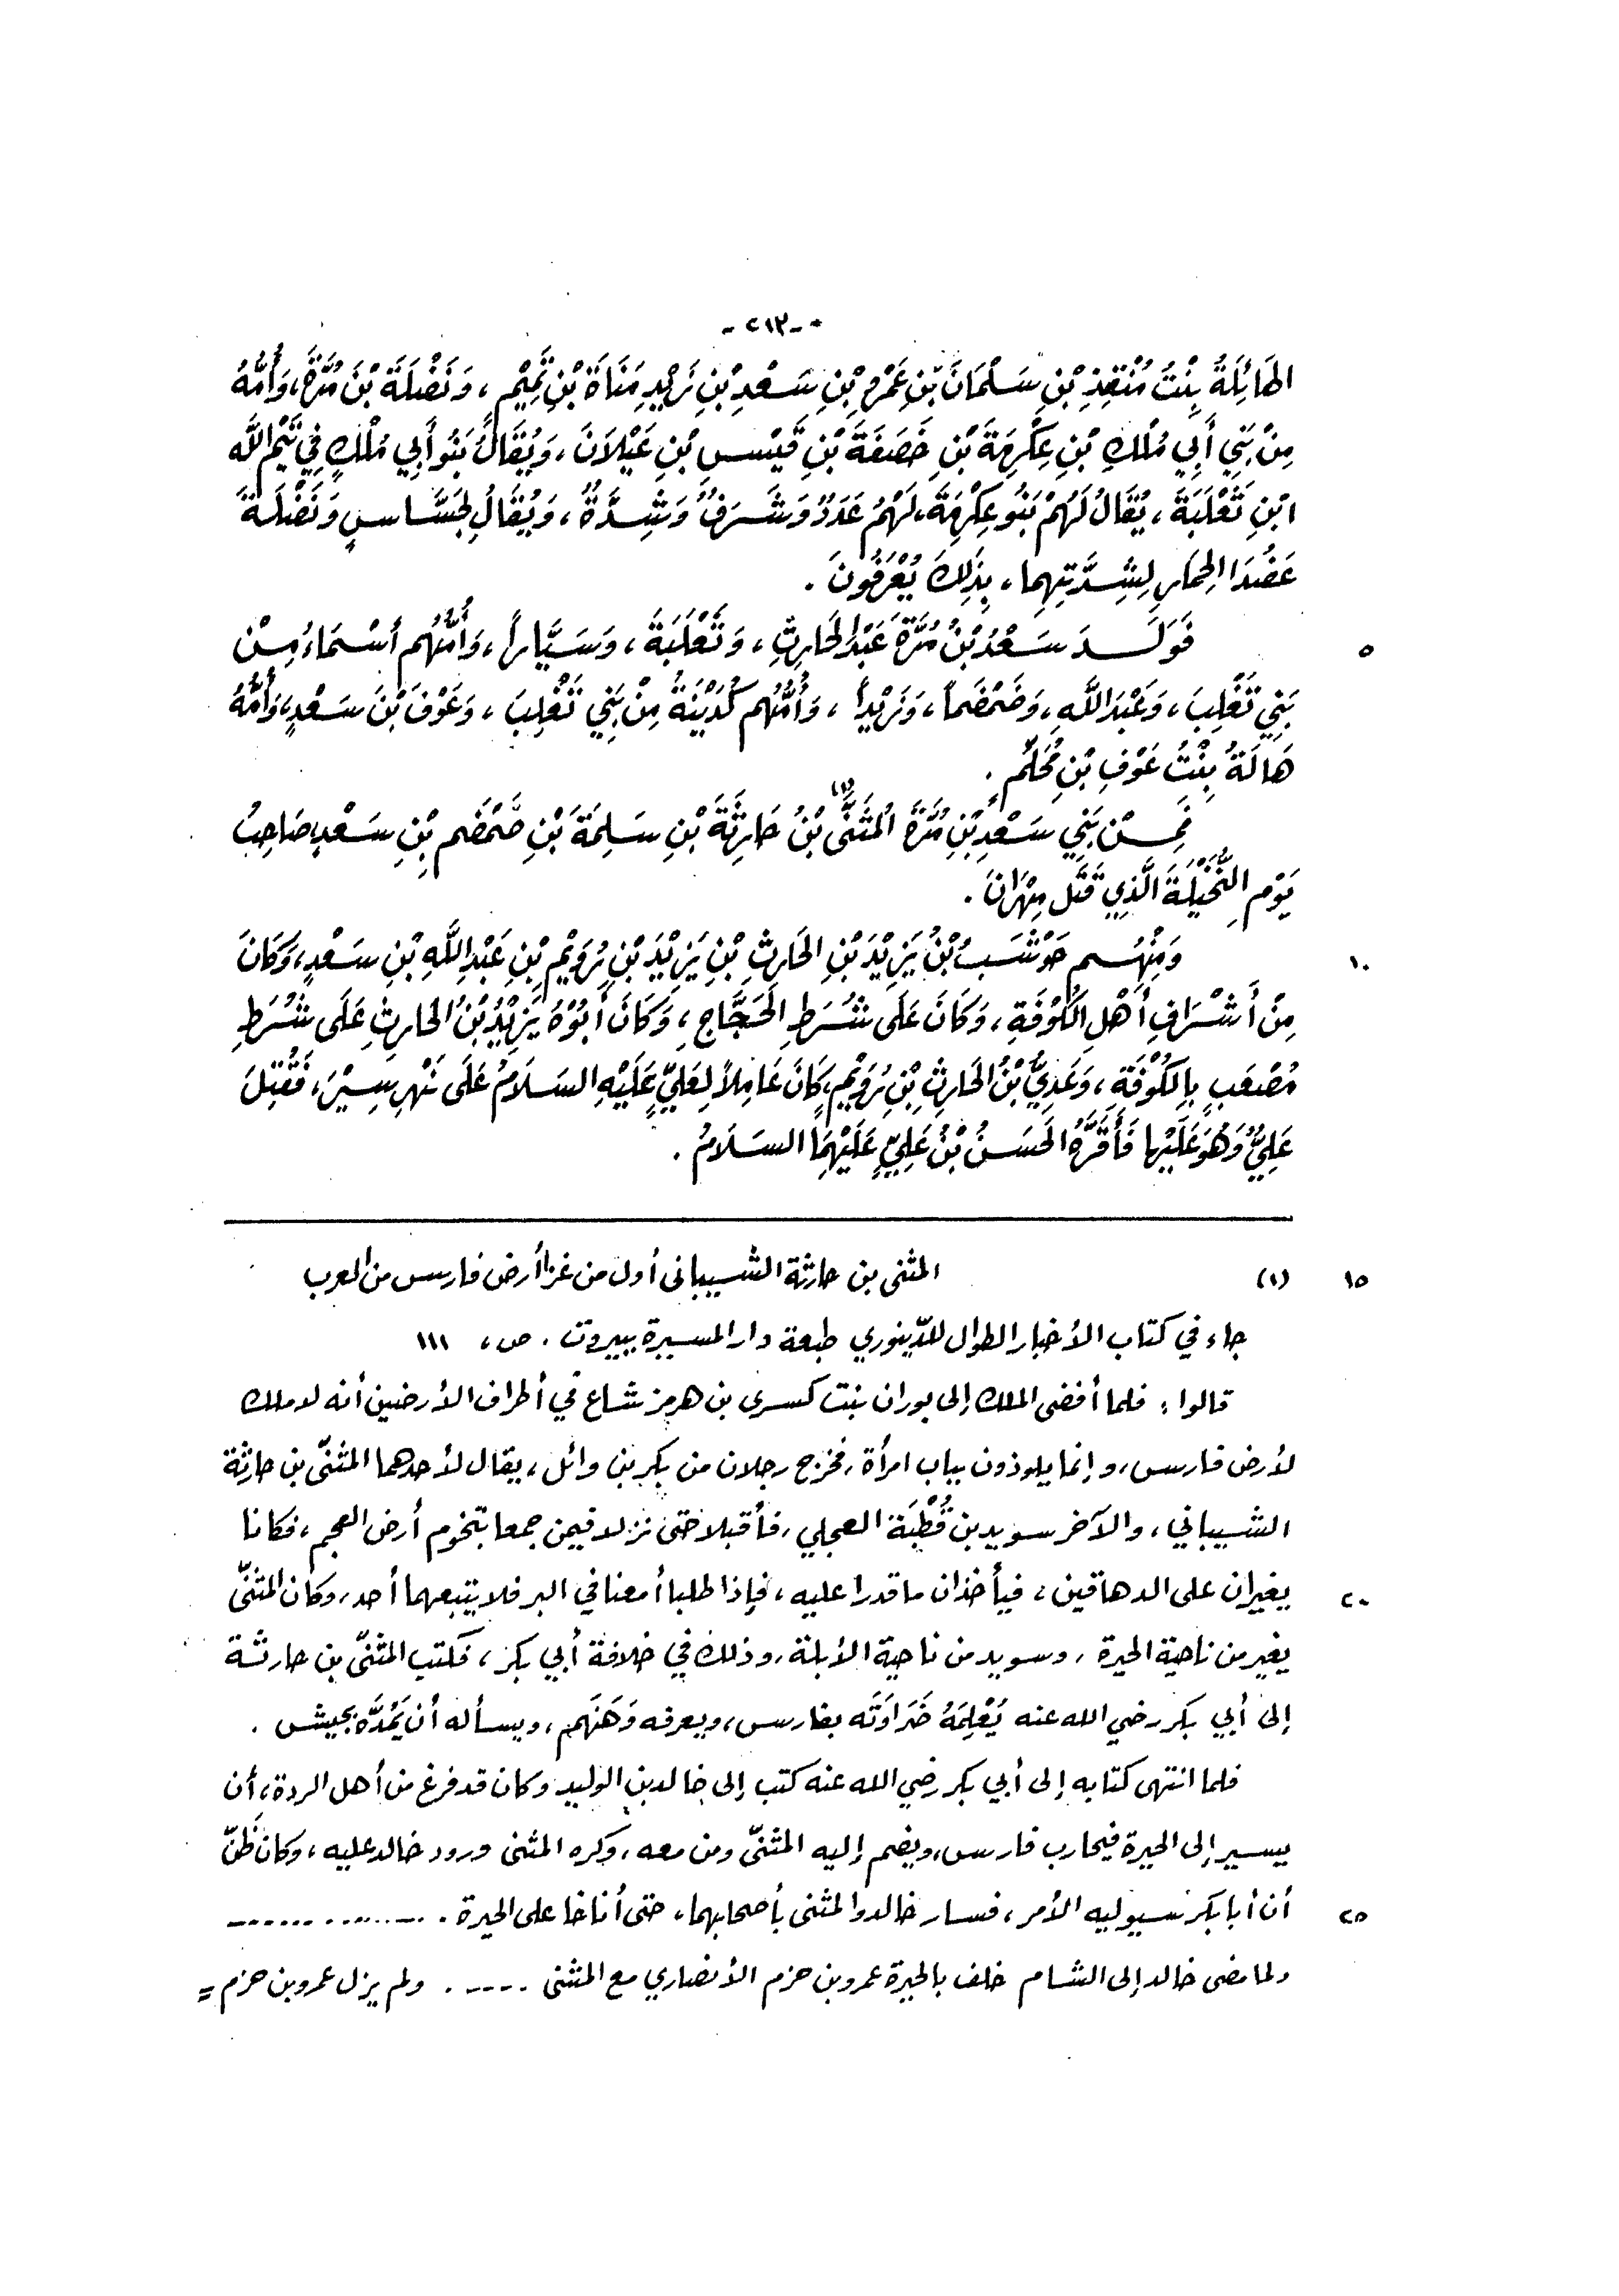 - ٢١٣ -
الهَائِلَةُ بِنْتُ مُنْقِذِ بْنِ سَلْمَانَ بْنِ عَمْرِو بْنِ سَعْدِ بْنِ زَيْدِ مَنَاةَ بْنِ تَمِيْمٍ، وَنَضْلَةَ بْنَ مُرَّةَ، وَأُمُّهُ
مِنْ بَنِي أَبِي مُلْكِ بْنِ عِكْرِمَةَ بْنِ خَصَفَةَ بْنِ قَيْسِ بْنِ عَيْلَانَ، وَيُقَالُ بَنُو أَبِي مُلْكٍ فِي تَيْمِ اللَّهِ
ابْنِ ثَعْلَبَةَ، يُقَالُ لَهُمْ بَنُو عِكْرِمَةَ، لَهُمْ عَدَدٌ وَشَرَفٌ وَشِدَّةٌ، وَيُقَالُ لِجَسَّاسٍ وَنَضْلَةَ
عَضُدَا الحِمَارِ لِشِدَّتِهِمَا، بِذَلِكَ يُعْرَفُونَ.
٥ فَوَلَدَ سَعْدُ بْنُ مُرَّةَ عَبْدَ الحَارِثِ، وَثَعْلَبَةَ، وَسَيَّاراً، وَأُمُّهُم أَسْمَاءُ مِنْ
بَنِي تَغْلِبَ، وَعَبْدَ اللَّهِ، وَضَمْضَماً، وَزَيْداً، وَأُمُّهُم كُدَيْنَةُ مِنْ بَنِي تَغْلِبَ، وَعَوْفَ بْنَ سَعْدٍ، وَأُمُّهُ
هَالَةُ بِنْتُ عَوْفِ بْنِ مُحَلِّمٍ.
فَمِنْ بَنِي سَعْدِ بْنِ مُرَّةَ المُثَنَّى (١) بْنُ حَارِثَةَ بْنِ سَلِمَةَ بْنِ ضَمْضَمِ بْنِ سَعْدٍ، صَاحِبُ
يَوْمِ النُّخَيْلَةَ الَّذِي قَتَلَ مِهْرَانَ.
١٠ وَمِنْهُم حَوْشَبُ بْنُ يَزِيْدَ بْنِ الحَارِثِ بْنِ يَزِيْدَ بْنِ رُوَيْمِ بْنِ عَبْدِ اللَّهِ بْنِ سَعْدٍ، وَكَانَ
مِنْ أَشْرَافِ أَهْلِ الكُوْفَةِ، وَكَانَ عَلَى شُرَطِ الحَجَّاجِ، وَكَانَ أَبُوْهُ يَزِيْدُ بْنُ الحَارِثِ عَلَى شُرَطِ
مُصْعَبٍ بِالكُوْفَةِ، وَعَدِيُّ بْنُ الحَارِثِ بْنِ رُوَيْمٍ، كَانَ عَامِلاً لِعَلِيٍّ عَلَيْهِ السَلَامُ عَلَى نَهْرِ سِيْرَ، فَقُتِلَ
عَلِيٌّ وَهُوَ عَلَيْهَا فَأَقَرَّهُ الحَسَنُ بْنُ عَلِيٍّ عَلَيْهِمَا السَلَامُ.
١٥ (١) المثنى بن حارثة الشيباني أول من غزا أرض فارس من العرب
جاء في كتاب الأخبار الطوال للدّينوري طبعة دار المسيرة ببيروت. ص، ١١١
قالوا: فلما أفضى الملك إلى بوران بنت كسرى بن هرمز شاع في أطراف الأرضين أنه لا ملك
لأرض فارس، وإنما يلوذون بباب امرأة، فخرج رجلان من بكر بن وائل، يقال لأحدهما المثنّى بن حارثة
الشيباني، والآخر سويد بن قُطْبَة العجلي، فأقبلا حتى نزلا فيمن جمعا بتخوم أرض العجم، فكانا
٢٠ يغيران على الدهاقين، فيأخذان ما قدرا عليه، فإذا طلبا أمعنا في البر فلا يتبعهما أحد، وكان المثنّى
يغير من ناحية الحيرة، وسويد من ناحية الأبلة، وذلك في خلافة أبي بكر، فكتب المثنّى بن حارثة
إلى أبي بكر رضي الله عنه يُعْلِمَهُ ضَرَاوَتَه بفارس، ويعرفه وَهَنَهم، ويسأله أن يَمُدَّه بجيش.
فلما انتهى كتابه إلى أبي بكر رضي الله عنه كتب إلى خالد بن الوليد وكان قد فرغ من أهل الردة، أن
يسير إلى الحيرة فيحارب فارس، ويضم إليه المثنّى ومن معه، وكره المثنى ورود خالد عليه، وكان ظَنّ
٢٥ أن أبا بكر سيوليه الأمر، فسار خالد والمثنى بأصحابهما، حتى أناخا على الحيرة. ...............
ولما مضى خالد إلى الشام خلف بالحيرة عمرو بن حزم الأنصاري مع المثنى ..... ولم يزل عمرو بن حزم =